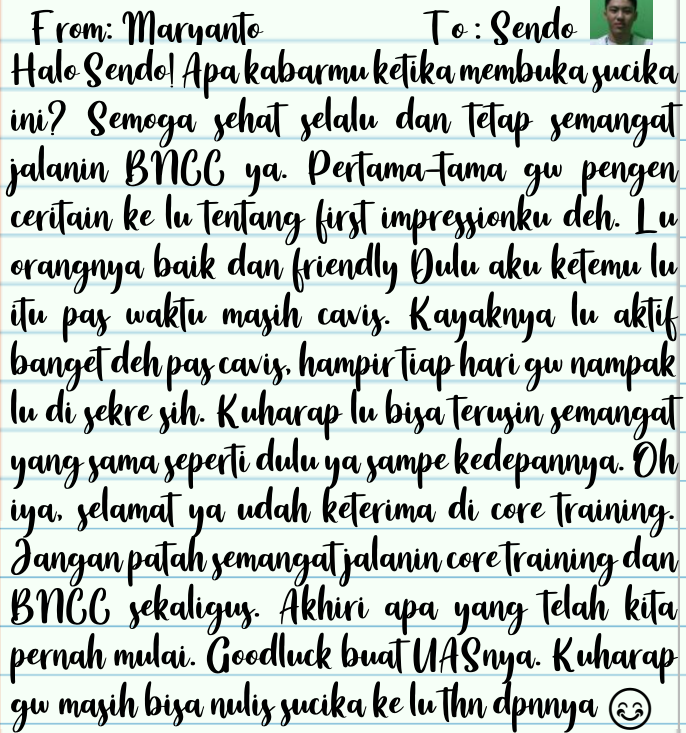 From: Maryanto To: Sendo
Halo Sendo! Apa kabarmu ketika membuka sucika
ini? Semoga sehat selalu dan tetap semangat
jalanin BNCC ya. Pertama-tama gw pengen
ceritain ke lu tentang first impressionku deh. Lu
orangnya baik dan friendly Dulu aku ketemu lu
itu pas waktu masih cavis. Kayaknya lu aktif
banget deh pas cavis, hampir tiap hari gw nampak
lu di sekre sih. Kuharap lu bisa terusin semangat
yang sama seperti dulu ya sampe kedepannya. Oh
iya, selamat ya udah keterima di core training.
Jangan patah semangat jalanin core training dan
BNCC sekaligus. Akhiri apa yang telah kita
pernah mulai. Goodluck buat UASnya. Kuharap
gw masih bisa nulis sucika ke lu thn dpnnya 😊